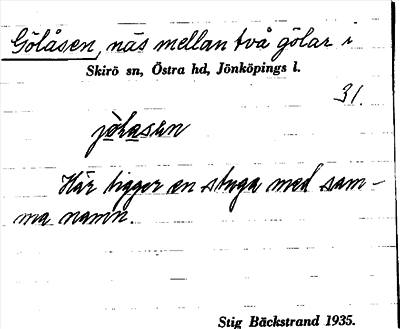 Gölåsen, näs mellan två gölar i
Skirö sn, Östra hd, Jönköpings l.
31.
jölasen
Här ligger en stuga med sam-
ma namn.
Stig Bäckstrand 1935.